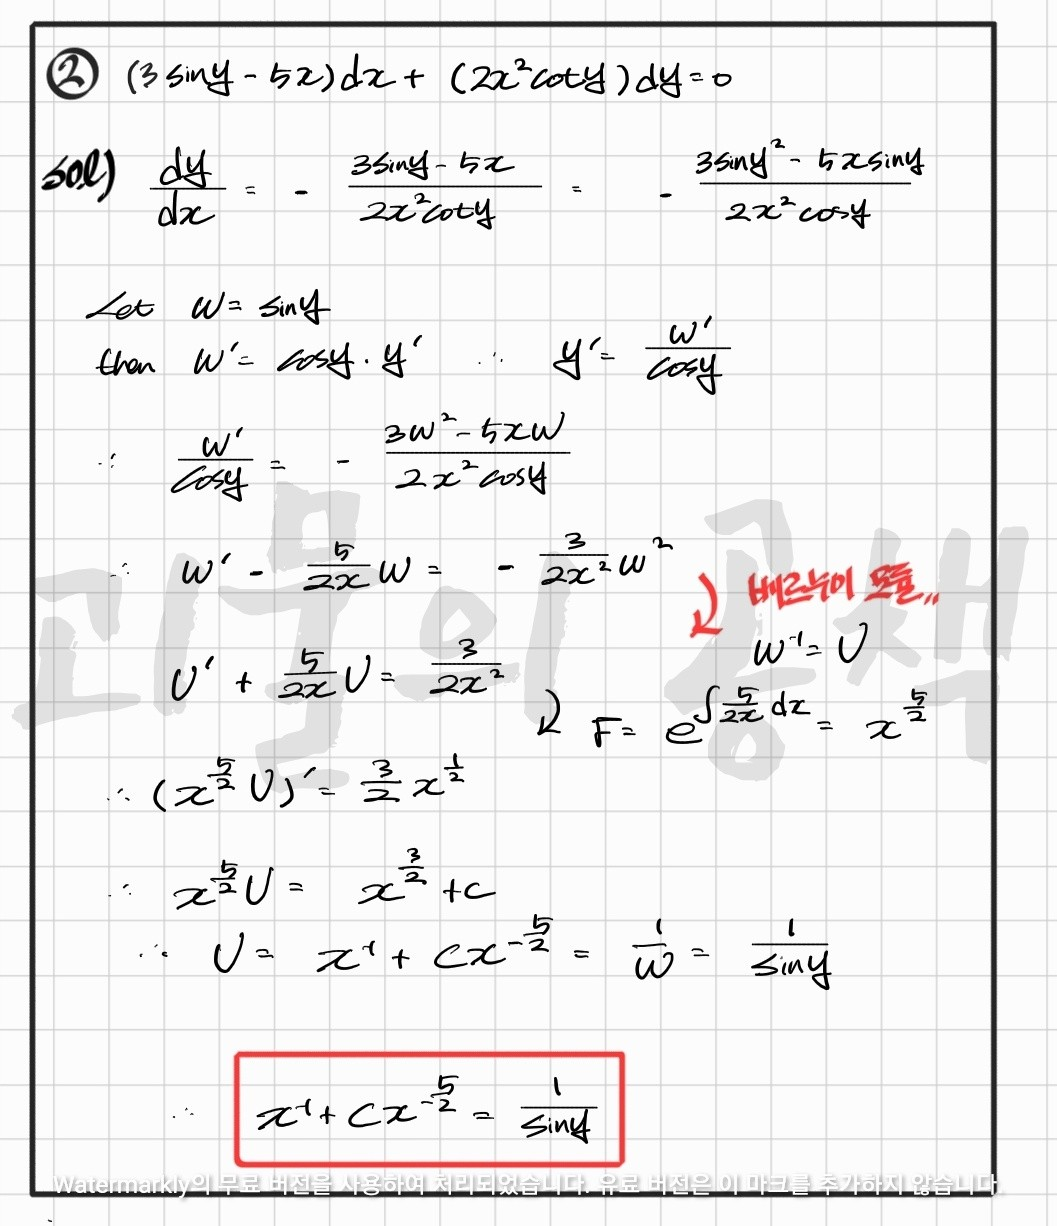 ② (3 siny - 5x)dx + (2x²coty)dy = 0
sol) dy/dx = - (3siny - 5x)/(2x²coty) = - (3siny² - 5xsiny)/(2x² cosy)
Let W = siny
then W' = cosy · y' ∴ y' = W'/cosy
∴ W'/cosy = - (3W² - 5xW)/(2x² cosy)
∴ W' - 5/(2x) W = - 3/(2x²) W²
베르누이 모듈,,
W⁻¹ = U
U' + 5/(2x) U = 3/(2x²)
F = e^(∫ 5/(2x) dx) = x^(5/2)
∴ (x^(5/2) U)' = 3/2 x^(1/2)
∴ x^(5/2) U = x^(3/2) + c
∴ U = x⁻¹ + Cx^(-5/2) = 1/W = 1/siny
∴ x⁻¹ + Cx^(-5/2) = 1/siny
고물의 공책
Watermarkly의 무료 버전을 사용하여 처리되었습니다. 유료 버전은 이 마크를 추가하지 않습니다